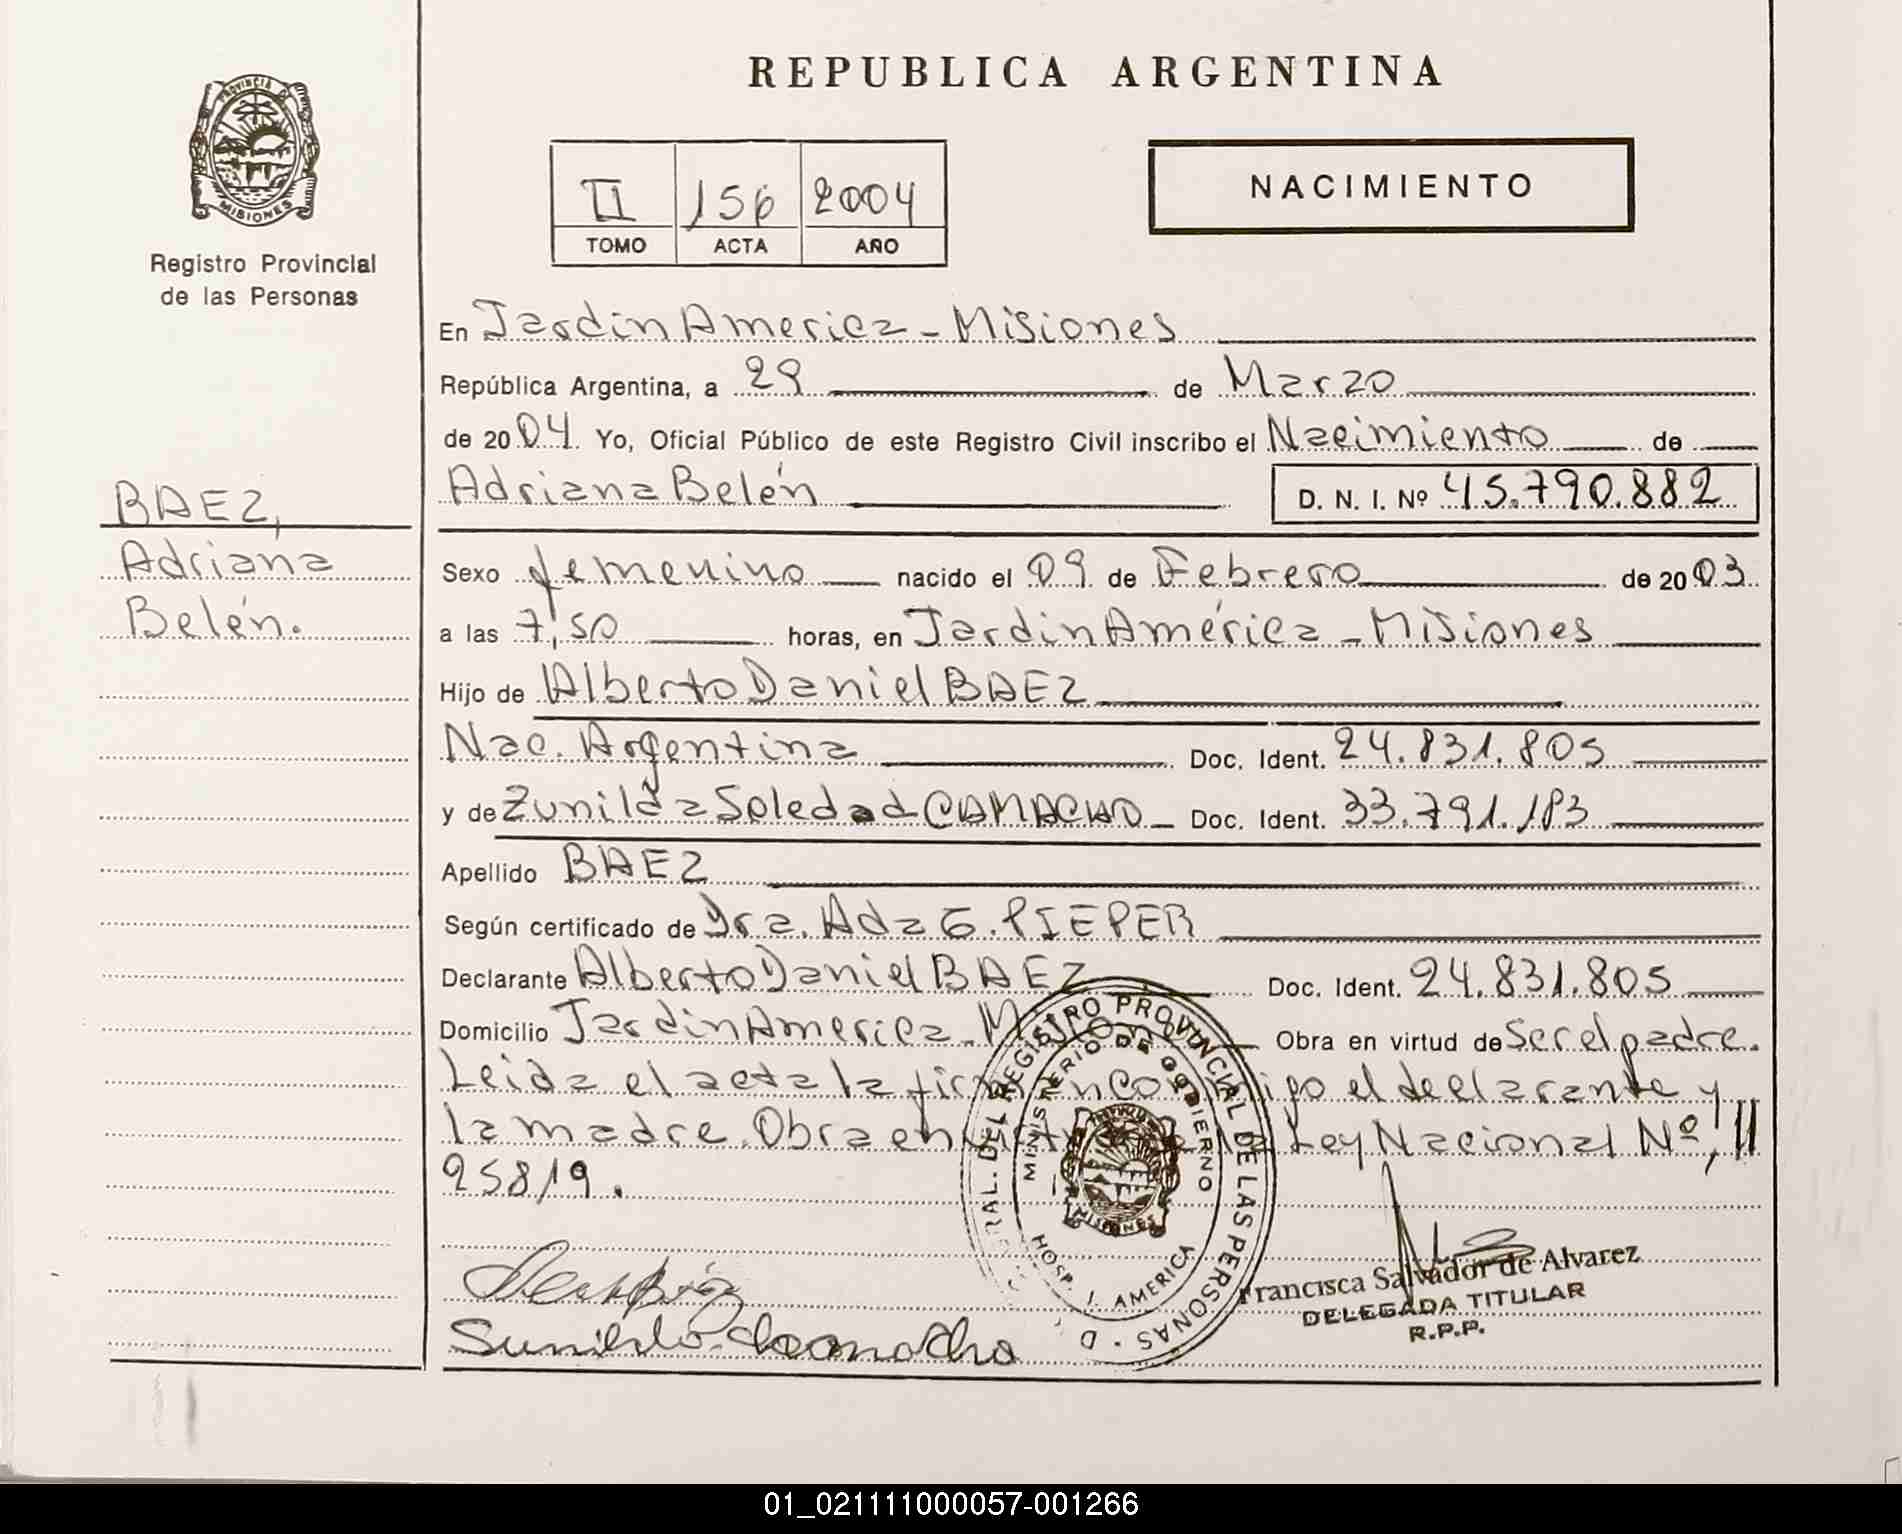 REPUBLICA ARGENTINA
PROVINCIA DE
MISIONES
Registro Provincial
de las Personas
II 156 2004
TOMO ACTA AÑO
NACIMIENTO
BAEZ,
Adriana
Belén.
En Jardin America - Misiones
República Argentina, a 29 de Marzo
de 2004. Yo, Oficial Público de este Registro Civil inscribo el Nacimiento de
Adriana Belén D. N. I. Nº 45.790.882
Sexo femenino nacido el 09 de Febrero de 2003
a las 7,50 horas, en Jardin América - Misiones
Hijo de Alberto Daniel BAEZ
Nac. Argentina Doc. Ident. 24.831.805
y de Zunilda Soledad CAMACHO Doc. Ident. 33.791.183
Apellido BAEZ
Según certificado de Dra. Ada G. PIEPER
Declarante Alberto Daniel BAEZ Doc. Ident. 24.831.805
Domicilio Jardin America - Misiones Obra en virtud de Ser el padre.
Leida el acta la firman conmigo el declarante y
la madre. Obra en virtud de la Ley Nacional Nº 11
258/19.
REGISTRO PROVINCIAL DE LAS PERSONAS
MINISTERIO DE GOBIERNO
HOSP. J. AMERICA
MISIONES
Sunildo. Camacho
Francisca Salvador de Alvarez
DELEGADA TITULAR
R.P.P.
01_021111000057-001266